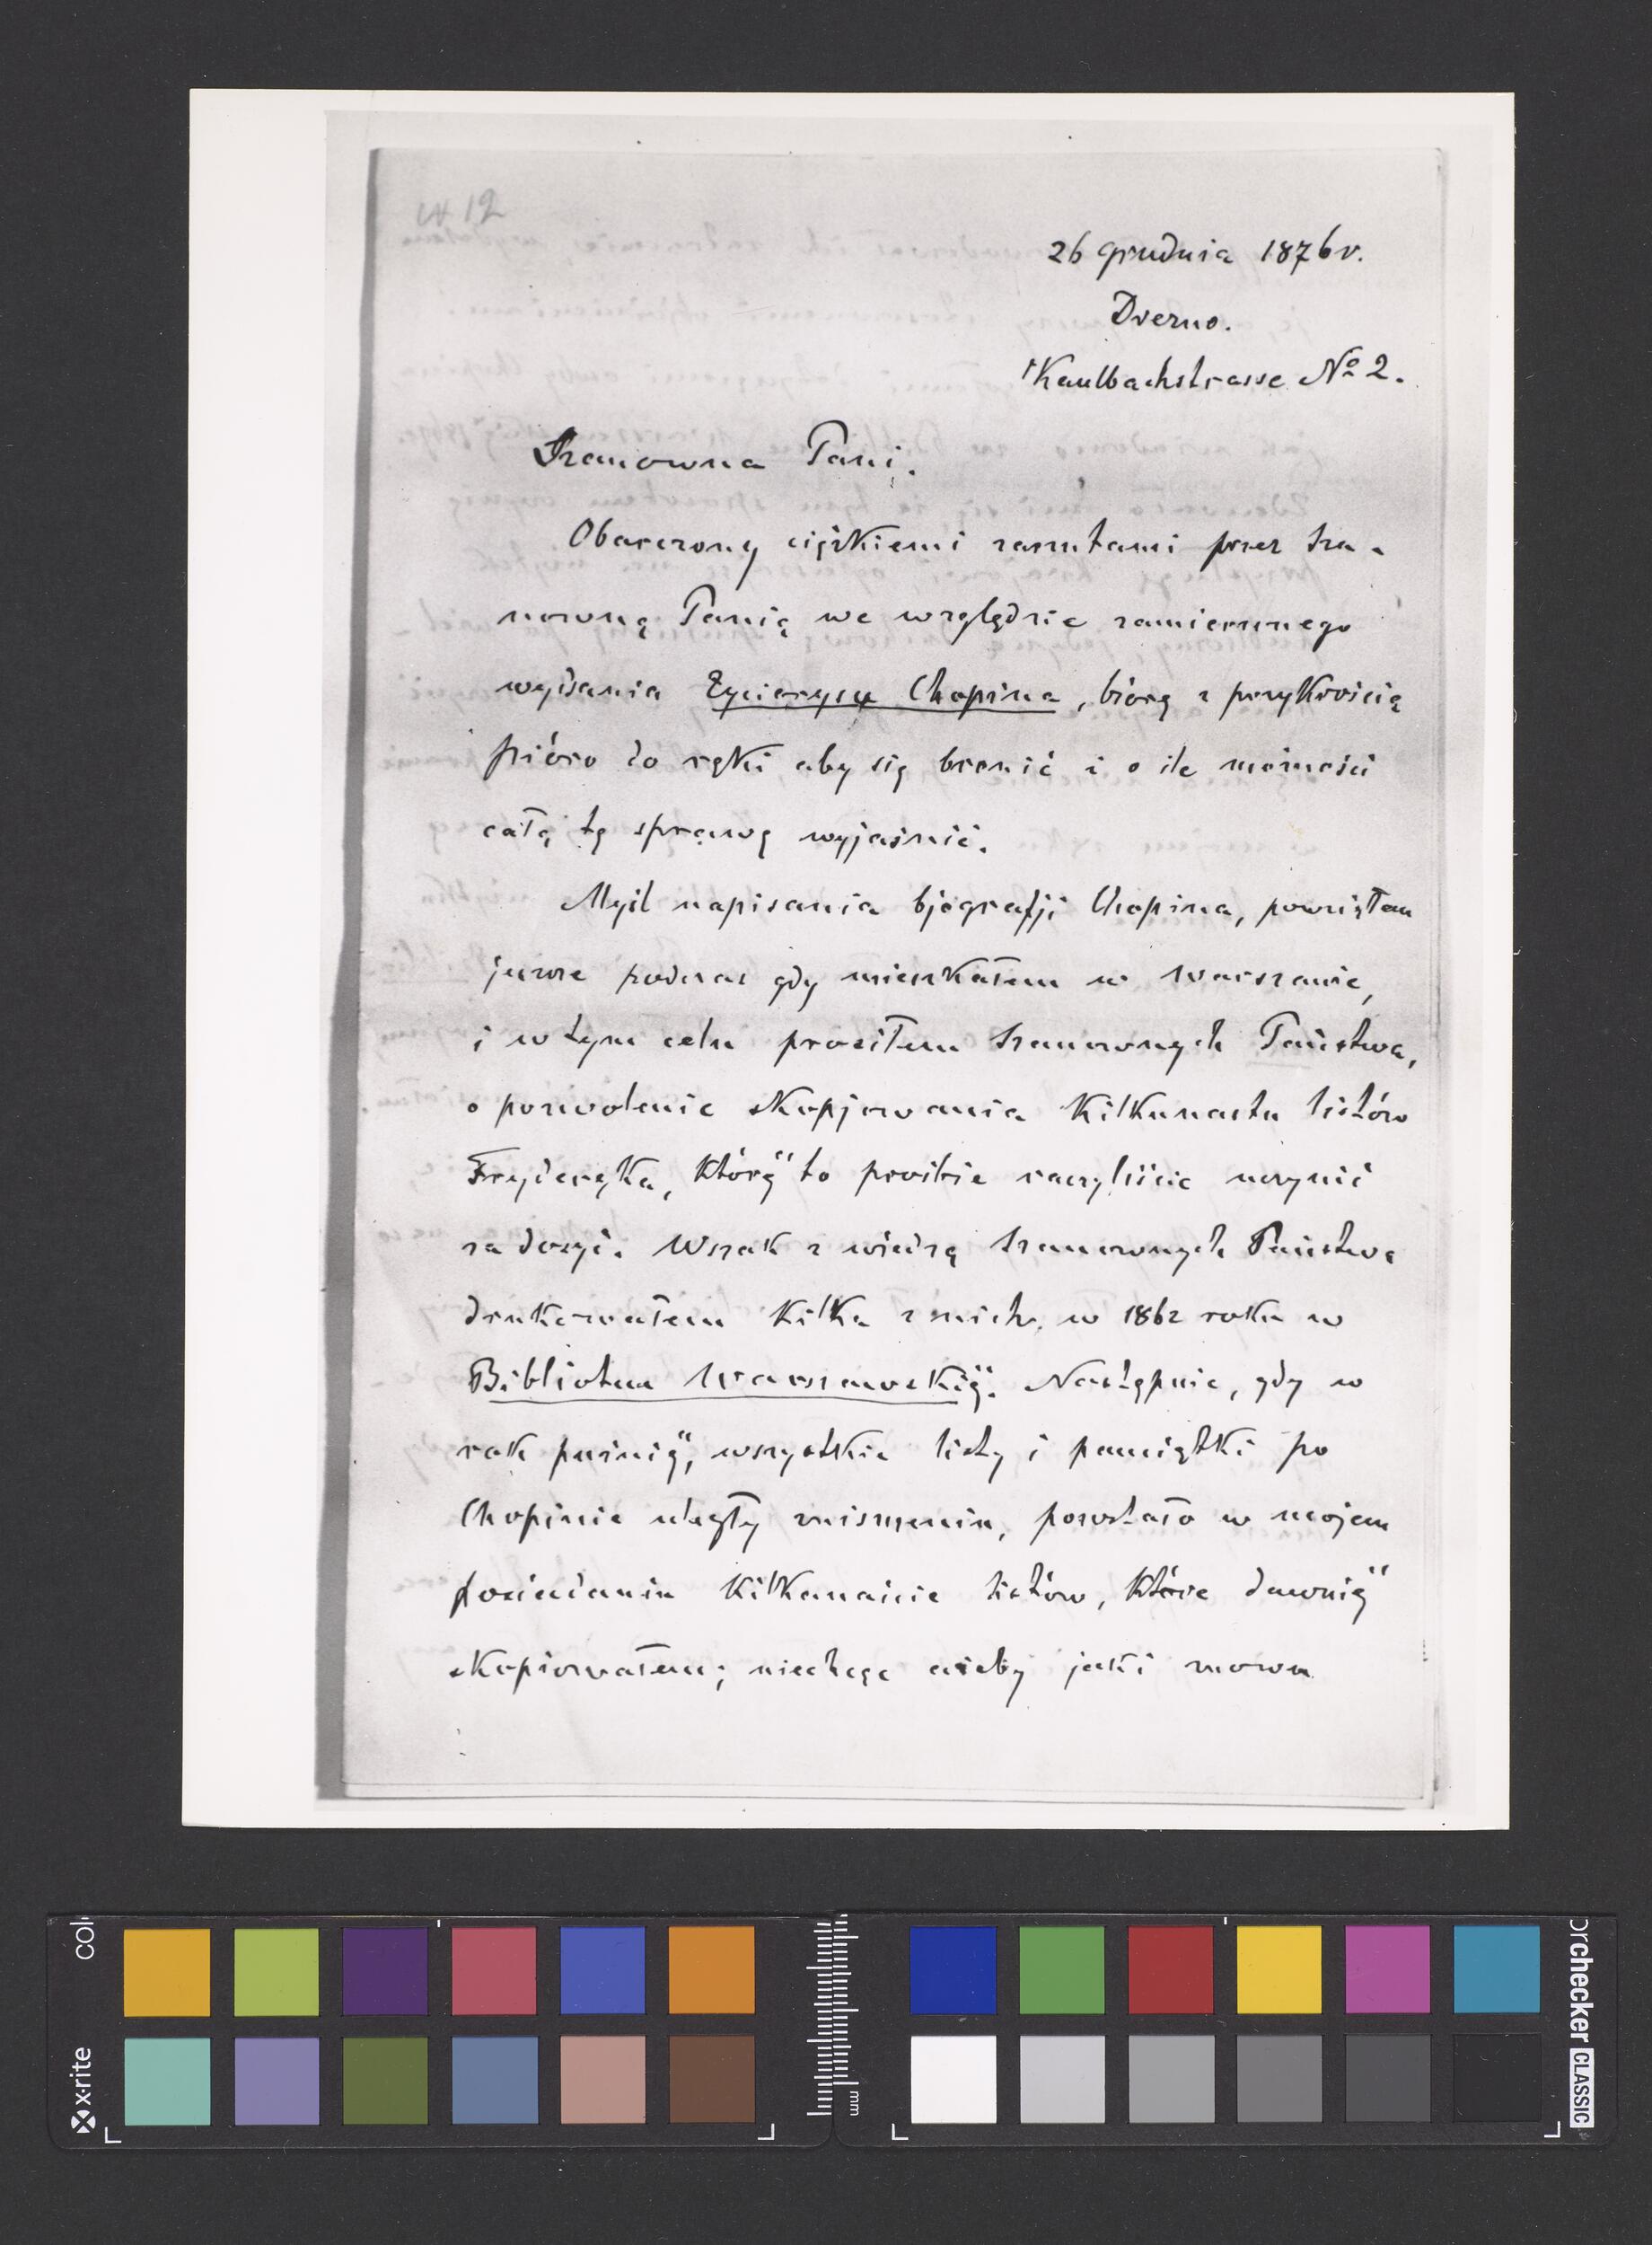 12
26 grudnia 1876 r.
Drezno.
Kaulbachstrasse № 2.
Szanowna Pani.
Obarczony ciężkiemi zarzutami przez Sza-
nowną Panią we względzie zamierzonego
wydania Życiorysu Chopina, biorę z przykrością
pióro do ręki aby się bronić i o ile możności
całą tę sprawę wyjaśnić.
Myśl napisania bjografji Chopina, powziąłem
jeszcze podczas gdy mieszkałem w Warszawie,
i w tym celu prosiłem Szanownych Państwa,
o pozwolenie skopjowania kilkunastu listów
Fryderyka, któréj to prośbie raczyliście uczynić
zadosyć. Wszak z wiedzą Szanownych Państwa
drukowałem kilka z nich w 1862 roku w
Bibliotece Warszawskiéj. Następnie, gdy w
rok puźniéj, wszystkie listy i pamiątki po
Chopinie uległy zniszczeniu, pozostało w mojem
posiadaniu kilkanaście listów, które dawniéj
skopiowałem; niechcąc ażeby jaki znowu
x-rite
colorchecker CLASSIC
mm